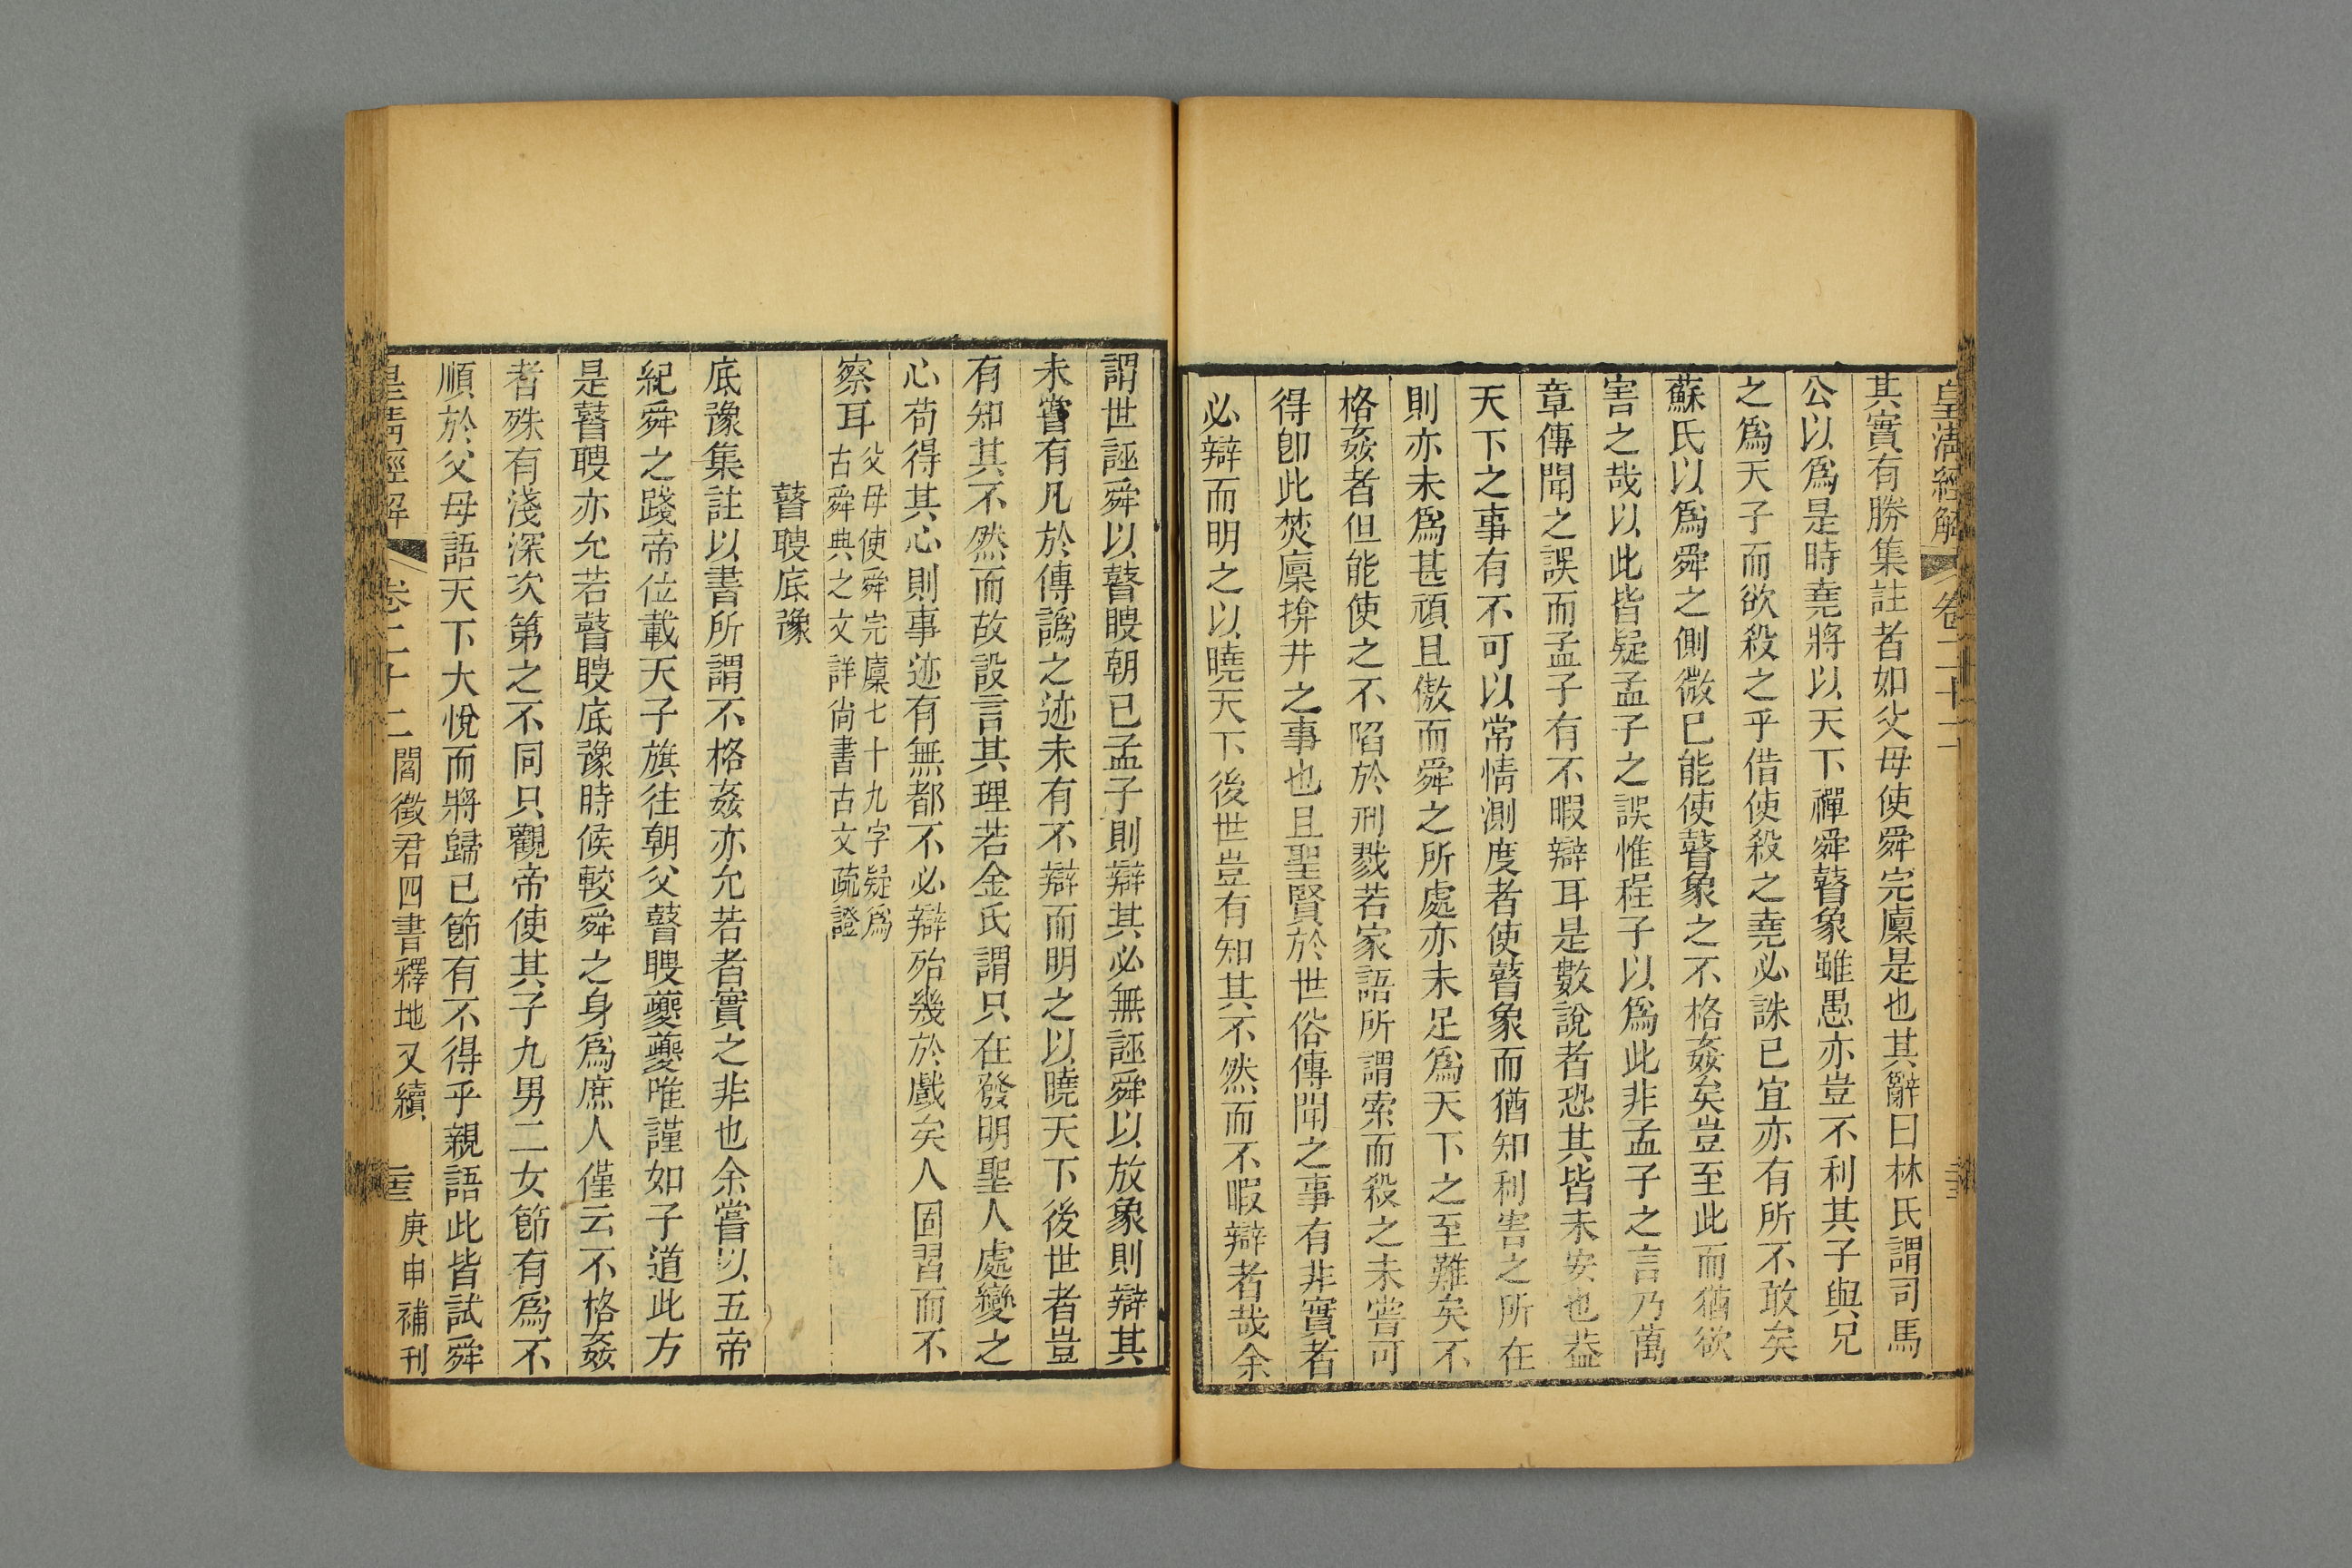 皇清經解 卷二十二
其實有勝集註者如父母使舜完廩是也其辭曰林氏謂司馬
公以爲是時堯將以天下禪舜瞽象雖愚亦豈不利其子與兄
之爲天子而欲殺之乎借使殺之堯必誅已宜亦有所不敢矣
蘇氏以爲舜之側微已能使瞽象之不格姦矣豈至此而猶欲
害之哉以此皆疑孟子之誤惟程子以爲此非孟子之言乃萬
章傳聞之誤而孟子有不暇辯耳是數說者恐其皆未安也葢
天下之事有不可以常情測度者使瞽象而猶知利害之所在
則亦未爲甚頑且傲而舜之所處亦未足爲天下之至難矣不
格姦者但能使之不陷於刑戮若家語所謂索而殺之未嘗可
得卽此焚廩揜井之事也且聖賢於世俗傳聞之事有非實者
必辯而明之以曉天下後世豈有知其不然而不暇辯者哉余
謂世誣舜以瞽瞍朝已孟子則辯其必無誣舜以放象則辯其
未嘗有凡於傳譌之迹未有不辯而明之以曉天下後世者豈
有知其不然而故設言其理若金氏謂只在發明聖人處變之
心苟得其心則事迹有無都不必辯殆幾於戲矣人固習而不
察耳父母使舜完廩七十九字疑爲
古舜典之文詳尚書古文疏證
瞽瞍底豫
底豫集註以書所謂不格姦亦允若者實之非也余嘗以五帝
紀舜之踐帝位載天子旗往朝父瞽瞍夔夔唯謹如子道此方
是瞽瞍亦允若瞽瞍底豫時候較舜之身爲庶人僅云不格姦
者殊有淺深次第之不同只觀帝使其子九男二女節有爲不
順於父母語天下大悅而將歸已節有不得乎親語此皆試舜
皇清經解 卷二十二 閻徵君四書釋地又續 庚申補刊